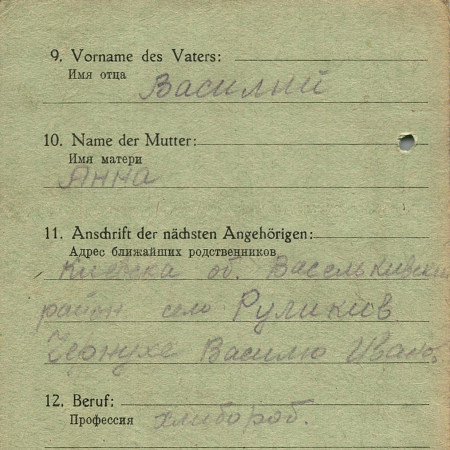 9. Vorname des Vaters:
Имя отца
Василий
10. Name der Mutter:
Имя матери
Анна
11. Anschrift der nächsten Angehörigen:
Адрес ближайших родственников
Киевска об. Васельковский
район село Руликив
Чернухе Василю Ивано
12. Beruf:
Профессия хлибороб.